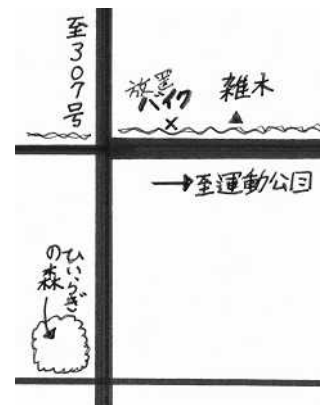 至307号
放置
バイク
×
雑木
→至運動公园
ひいらぎ
の森